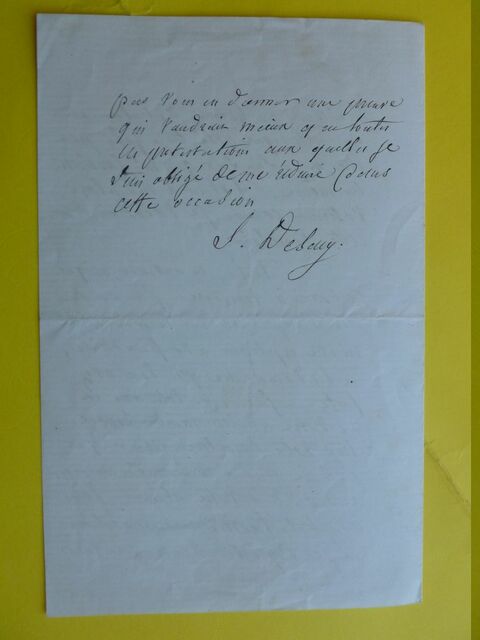 pas vous en donner une preuve
qui vaudrait mieux que toutes
les protestations aux quelles je
suis obligé de me réduire dans
cette occasion